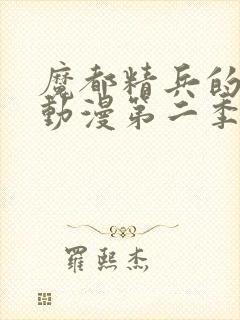 魔都精兵的
動漫第二季
羅熙杰